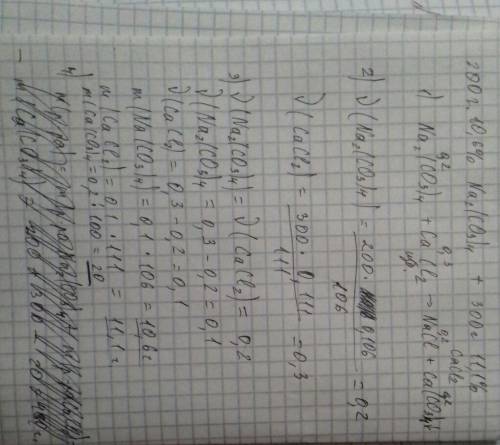 200 г. 10,6% Na₂(CO₃)₄ + 300 г 11,1% CaCl₂
1) Na₂(CO₃)₄ + CaCl₂ → NaCl + Ca(CO₃)₄↓
0,2 0,3 0,2 0,2
изб.
2) ν(Na₂(CO₃)₄) = 200 · 0,106 / 106 = 0,2
ν(CaCl₂) = 300 · 0,111 / 111 = 0,3
3) ν(Na₂CO₃)₄ = ν(CaCl₂) = 0,2
ν(Na₂CO₃)₄ = 0,3 - 0,2 = 0,1
ν(CaCl₂) = 0,3 - 0,2 = 0,1
m(Na₂(CO₃)₄) = 0,1 · 106 = 10,6 г
m(CaCl₂) = 0,1 · 111 = 11,1 г.
m(Ca(CO₃)₄ = 0,2 · 100 = 20
4)